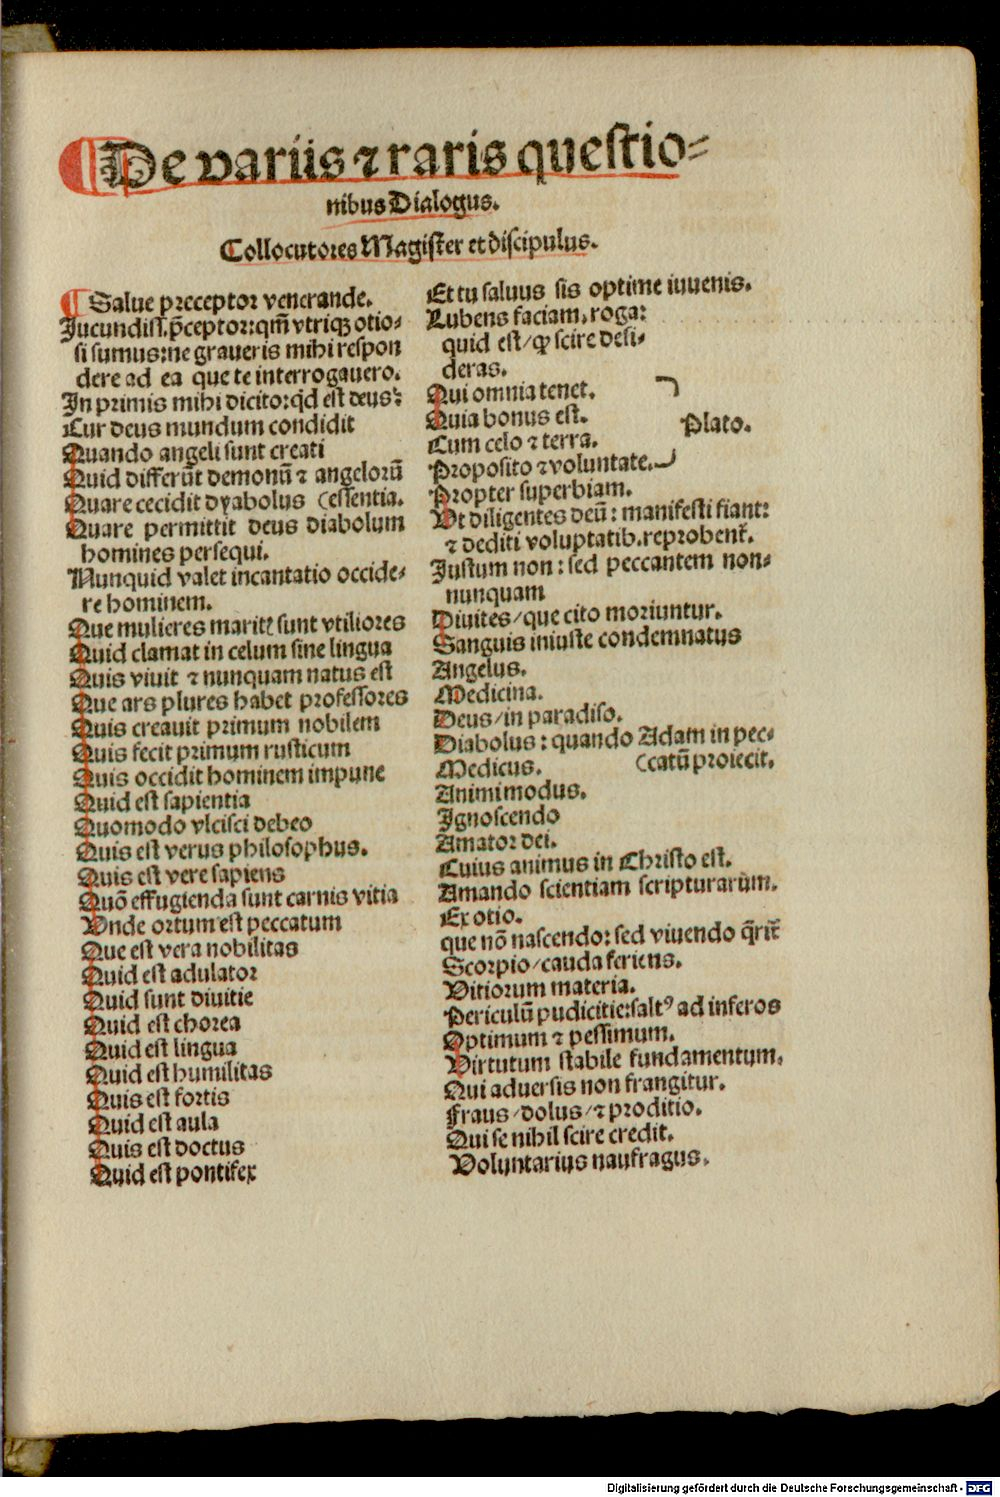 De variis ⁊ raris questio⸗
nibus Dialogus.
Collocutores Magister et discipulus.
Salue preceptor venerande.
Jucundiss. p̄ceptor: qm̄ vtriqꝫ otio⸗
si sumus: ne graueris mihi respon
dere ad ea que te interrogauero.
In primis mihi dicito: qd̄ est deus?
Cur deus mundum condidit
Quando angeli sunt creati
Quid differūt demonū ⁊ angelorū
Quare cecidit dyabolus (essentia.
Quare permittit deus diabolum
homines persequi.
Nunquid valet incantatio occide⸗
re hominem.
Que mulieres maritꝭ sunt vtiliores
Quid clamat in celum sine lingua
Quis viuit ⁊ nunquam natus est
Que ars plures habet professores
Quis creauit primum nobilem
Quis fecit primum rusticum
Quis occidit hominem impune
Quid est sapientia
Quomodo vlcisci debeo
Quis est verus philosophus.
Quis est vere sapiens
Quō effugienda sunt carnis vitia
Vnde ortum est peccatum
Que est vera nobilitas
Quid est adulator
Quid sunt diuitie
Quid est chorea
Quid est lingua
Quid est humilitas
Quis est fortis
Quid est aula
Quis est doctus
Quid est pontifex
Et tu saluus sis optime iuuenis.
Lubens faciam, roga:
quid est/ꝙ scire desi⸗
deras.
Qui omnia tenet.
Quia bonus est.
Plato.
Cum celo ⁊ terra.
Proposito ⁊ voluntate.
Propter superbiam.
Vt diligentes deū: manifesti fiant:
⁊ dediti voluptatib. reprobent̄.
Justum non: sed peccantem non⸗
nunquam
Diuites/que cito moriuntur.
Sanguis iniuste condemnatus
Angelus.
Medicina.
Deus/in paradiso.
Diabolus: quando Adam in pec⸗
Medicus. (catū proiecit.
Animi modus.
Ignoscendo
Amator dei.
Cuius animus in Christo est.
Amando scientiam scripturarum.
Ex otio.
que nō nascendo: sed viuendo q̄rit̄
Scorpio/cauda feriens.
Vitiorum materia.
Periculū pudicitie: saltꝰ ad inferos
Optimum ⁊ pessimum.
Virtutum stabile fundamentum.
Qui aduersis non frangitur.
Fraus/dolus/⁊ proditio.
Qui se nihil scire credit.
Voluntarius naufragus.
Digitalisierung gefördert durch die Deutsche Forschungsgemeinschaft - DFG